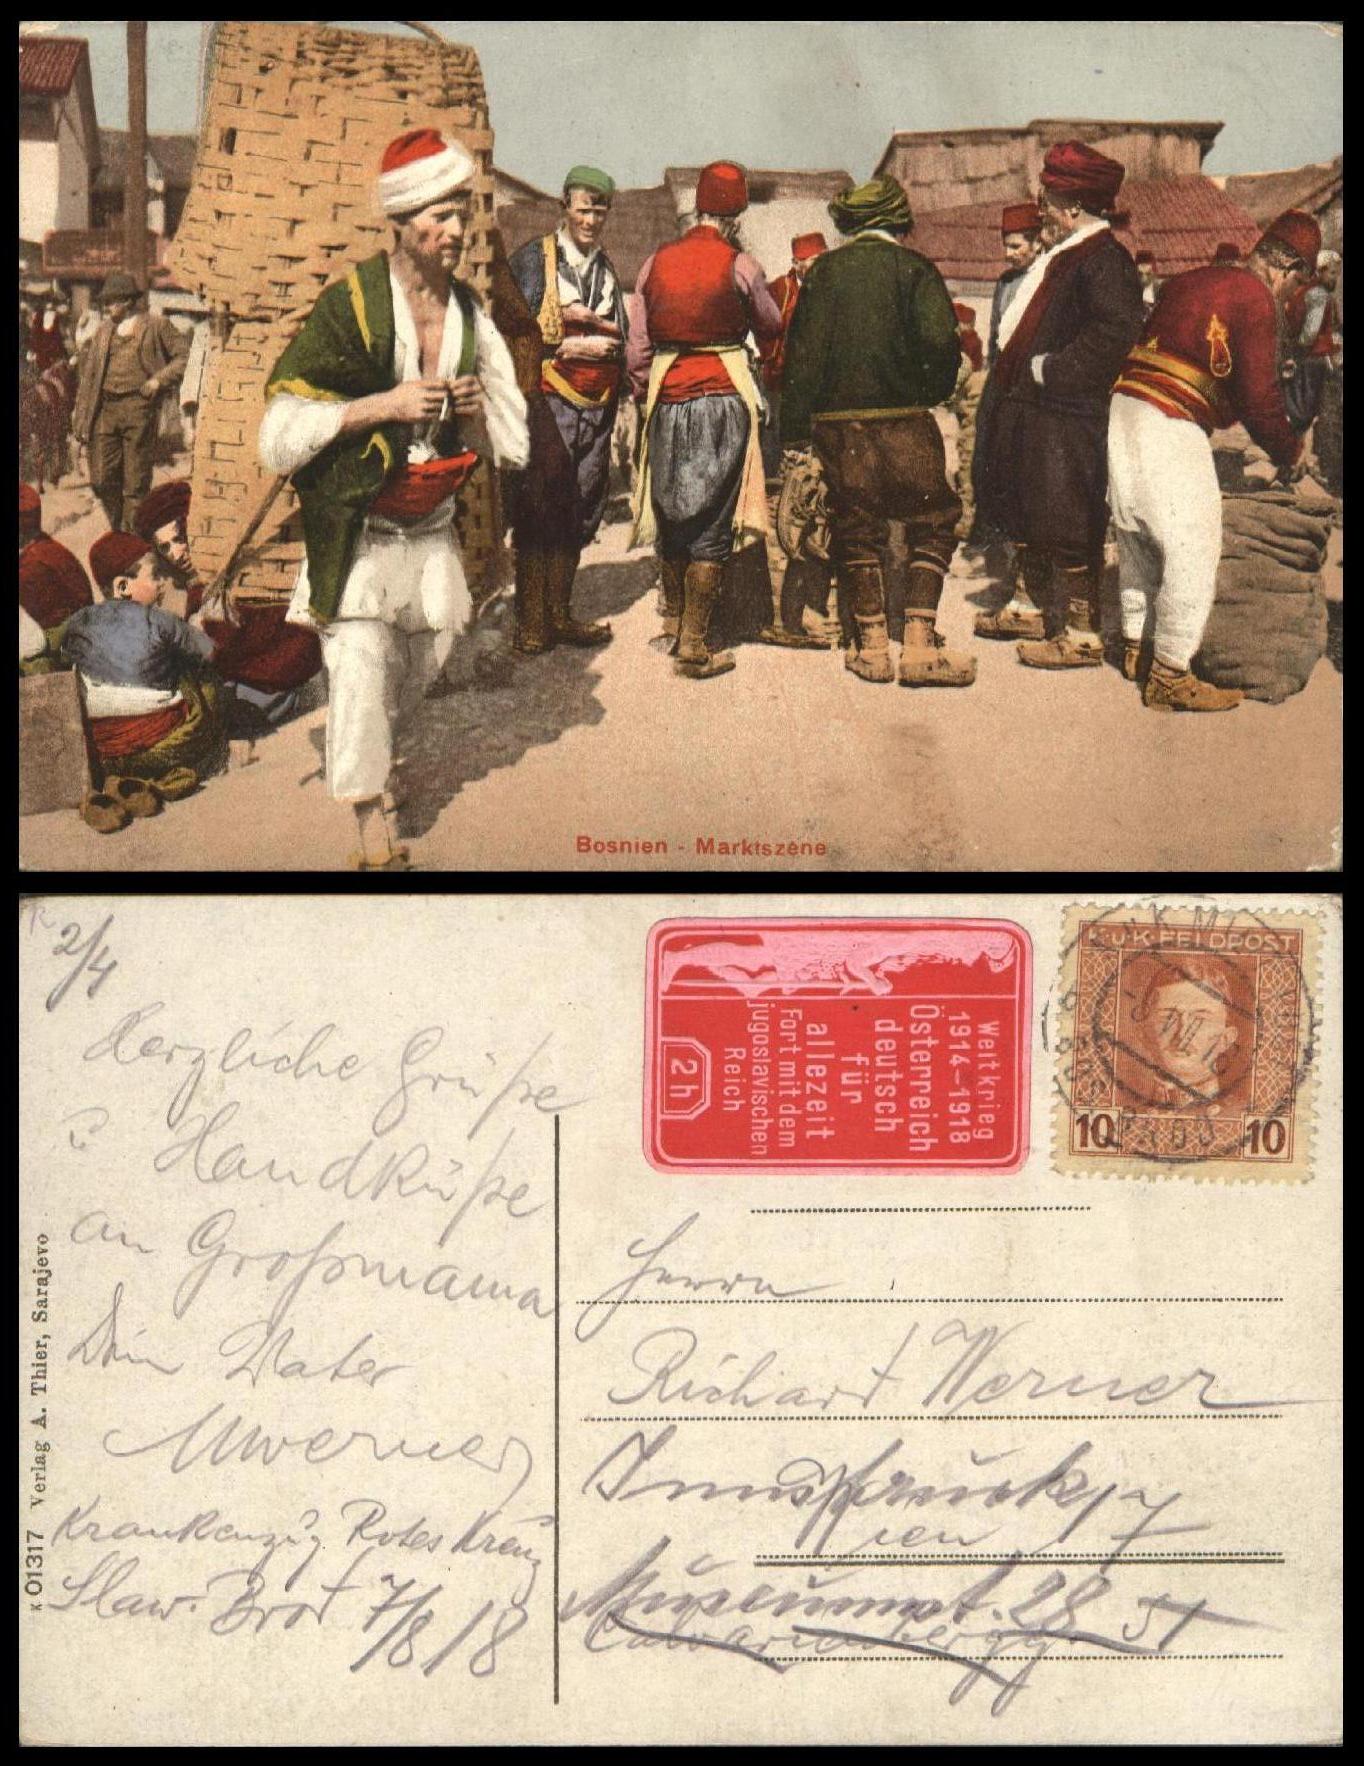 Bosnien - Marktszene
2/4
Herzliche Grüße
u Handküße
an Großmama
Dein Vater
MWerner
Krankenzug Rotes Kreuz
Slaw. Brod 7/8 18
K 01317 Verlag A. Thier, Sarajevo
Weltkrieg
1914–1918
Österreich
deutsch
für
allezeit
Fort mit dem
jugoslavischen
Reich
2h
K.u.K. FELDPOST
10 10
Herrn
Richard Werner
Innsbruck
Wien 17
Museumst. 28
Calvarienbergg. 51